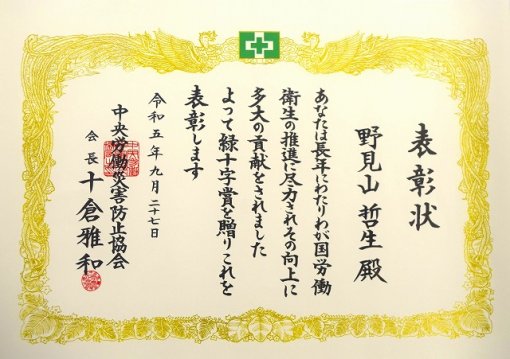 表彰状
野見山 哲生 殿
あなたは長年にわたりわが国労働
衛生の推進に尽力されその向上に
多大の貢献をされました
よって緑十字賞を贈りこれを
表彰します
令和五年九月二十七日
中央労働災害防止協会
会長 十倉雅和